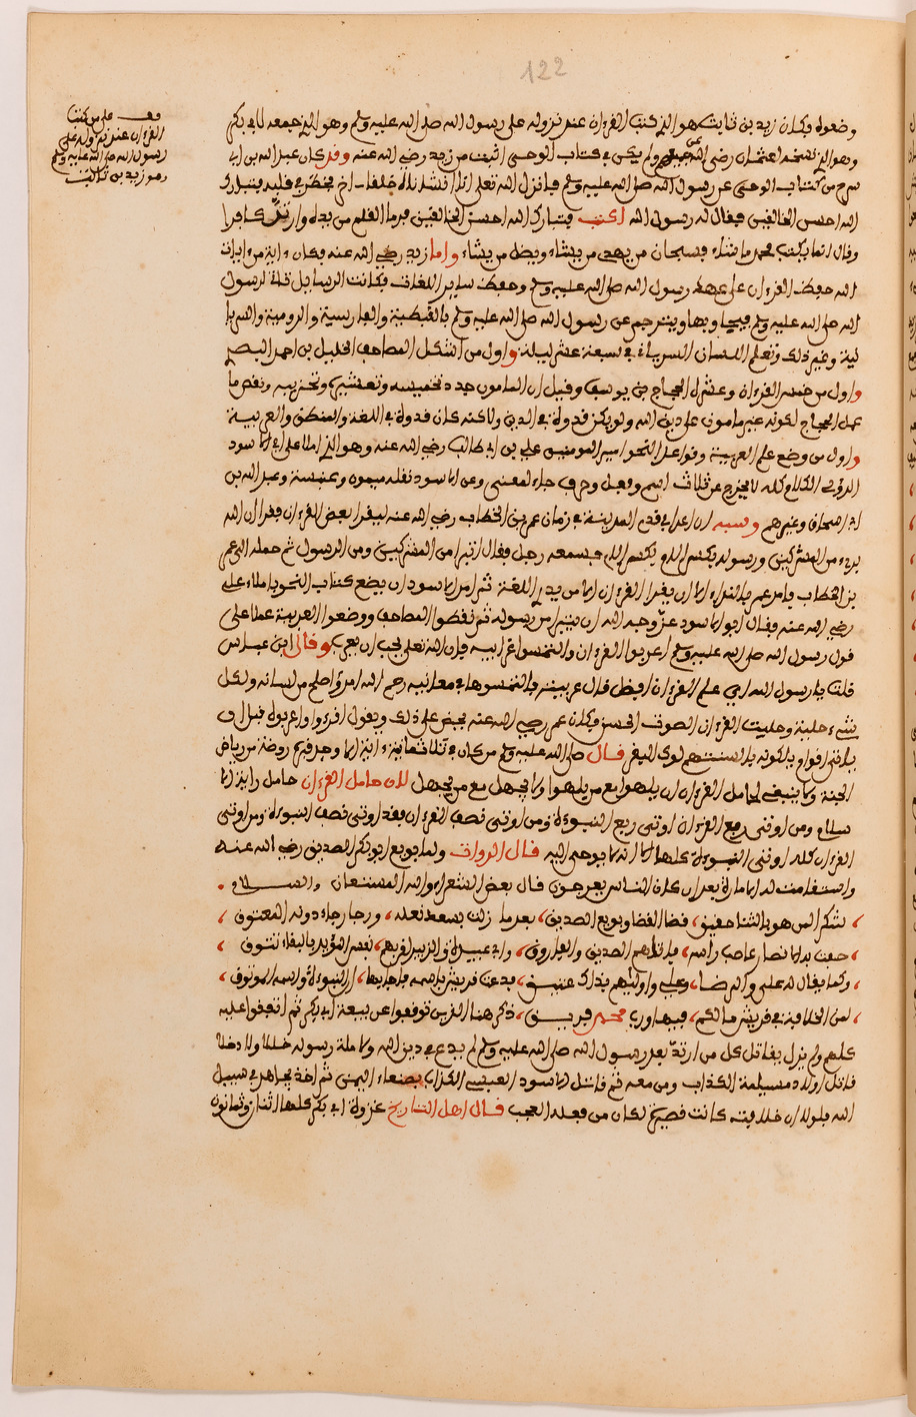 122
قف على من كتب
القرءان عند نزوله على
رسول الله صلى الله عليه وسلم
وهو زيد بن ثابت
وضعوه فكان زيد بن ثابت هو الذي كتب القرءان عند نزوله على رسول الله صلى الله عليه وسلم وهو الذي جمعه لابي بكر
وهو الذي نسخه لعثمان رضي الله عن جميعهم ولم يكن في كتاب الوحي اثبت من زيد رضي الله عنه وقد كان عبد الله بن ابي
سرح من كتاب الوحي عن رسول الله صلى الله عليه وسلم فانزل الله تعلى انا انشاناه خلقا ـاخر فخطر في قلبه فتبارك
الله احسن الخالقين فقال له رسول الله اكتب فتبارك الله احسن الخالقين فرما القلم من يده وارتد كافرا
وقال انما يكتب محمد ما شاء فسبحان من يهدي من يشاء ويضل من يشاء واما زيد رضي الله عنه فكان ءاية من ءايات
الله حفظ القرءان على عهد رسول الله صلى الله عليه وسلم وحفظ ساير اللغات فكانت الرسايل تاتي لرسول
الله صلى الله عليه وسلم فيجاوبها ويترجم عن رسول الله صلى الله عليه وسلم بالقبطية والفارسية والرومية والسريا
نية وغير ذلك وتعلم اللسان السرياني في سبعة عشر ليلة واول من اشكل المصاحف الخليل بن احمد البصري
واول من خمس القرءان وعشره الحجاج بن يوسف وقيل ان المامون جدد تخميسه وتعشيره وتحزيبه ونقص ما
عمل الحجاج لكونه غير مامون على دين الله ولم يكن قدوة في الدين ولاكنه كان قدوة في اللغة والمنطق والعربية
واول من وضع علم العربية وقواعد النحو امير المومنين علي بن ابي طالب رضي الله عنه وهو الذي املا على ابي الاسود
الدؤلي الكلام كله لا يخرج عن ثلاث اسم وفعل وحرف جاء لمعنى وعن ابي الاسود نقله ميمون وعنبسة وعبد الله بن
ابي اسحاق وغيرهم وسببه ان اعرابي قدم المدينة في زمان عمر بن الخطاب رضي الله عنه ليقرا بعض القرءان فقرا ان الله
بريء من المشركين ورسوله بكسر اللام فسمعه رجل فقال اتبرا من المشركين ومن الرسول ثم حمله الى عمر
بن الخطاب فامر عمر بالقراء الا ان يقرا القرءان الا من يدر اللغة ثم امر ابا الاسود ان يضع كتاب النحو باملاء علي
رضي الله عنه فقال ابو الاسود عز وجد الله ان يتبرا من رسوله ثم نقطوا المصاحف ووضعوا العربية عملا على
قول رسول الله صلى الله عليه وسلم اعربوا القرءان والتمسوا غرايبه فان الله تعلى يحب ان يعرب وقال ابن عباس
قلت يا رسول الله اي علم القرءان افضل قال عربيته فالتمسوها في معانيه رحم الله امرؤا اصلح من لسانه ولكل
شيء حلية وحليت القرءان الصوت الحسن وكان عمر رضي الله عنه يحض على ذلك ويقول اقرءوا واعربوه قبل ان
ياتي اقوام يلكونه بالسنتهم لوك البقر قال صلى الله عليه وسلم من كان في ثلاثماية ءاية الا وجد فيه روضة من رياض
الجنة ولا ينبغي لحامل القرءان ان يلهوا مع من يلهوا ولا يجهل مع من يجهل لان حامل القرءان حامل راية الا
سلام ومن اوتي ربع القرءان اوتي ربع النبوءة ومن اوتي نصف القرءان فقد اوتي نصف النبوءة ومن اوتي
القرءان كله اوتي النبوءة كلها الا انه لا يوحى اليه قال الرواة ولما بويع ابو بكر الصديق رضي الله عنه
واستقامت له الامارة بعد ان كان الناس يعرجون قال بعض الشعراء والله المستعان والسلام
شكرا لمن هو بالثنا حقيق، فضا القضا وبويع الصديق، بعد ما زلت بسعد نعله، ورجا رجاء دونه المعنوق
حفت به الانصار عاصب راسه، فاتاهم الصديق والفاروق، وابو عبيدة والزبير اليهم، نفس المؤيد بالبقاء تتوق
وكنا يقال لها علي والرضا، وعلي واوليهم بذاك عتيق، فدعت قريش باسمه فاجابها، ان النبوءة واسمه الموثوق
لمن الخلافة في قريش ما لكم، فيها ورب محمد فريق، ذكر هنا الذين توقفوا عن بيعة ابي بكر ثم اتفقوا عليه
كلهم ولم يزل يقاتل كل من ارتد بعد رسول الله صلى الله عليه وسلم لم يدع في دين الله ولا ملة رسوله خللا ولا دخلا
فاتل اولا مسيلمة الكذاب ومن معه ثم قاتل الاسود العبسي الكذاب بصنعاء اليمن ثم اخذ يجاهد في سبيل
الله فلولا ان خلافته كانت قصيرة لكان من فعله العجب قال اهل التاريخ غزوة ابي بكر كلها اثنان وثمانون